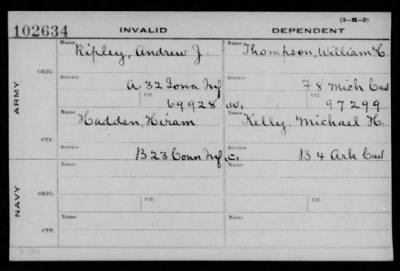 (3-H-5)
102634 INVALID DEPENDENT
Name Ripley, Andrew J. Name Thompson, William H.
ARMY
ORIG. Service A 32 Iowa Inf Service F 8 Mich Cav
Ctf. 69928 Ctf. W. 97299
Name Hadden, Hiram Name Kelly, Michael H.
CTF. Service B 23 Conn Inf Service C. B 4 Ark Cav
NAVY
Name Name
ORIG. Service Ctf. Service Ctf.
Name Name
CTF. Service Service